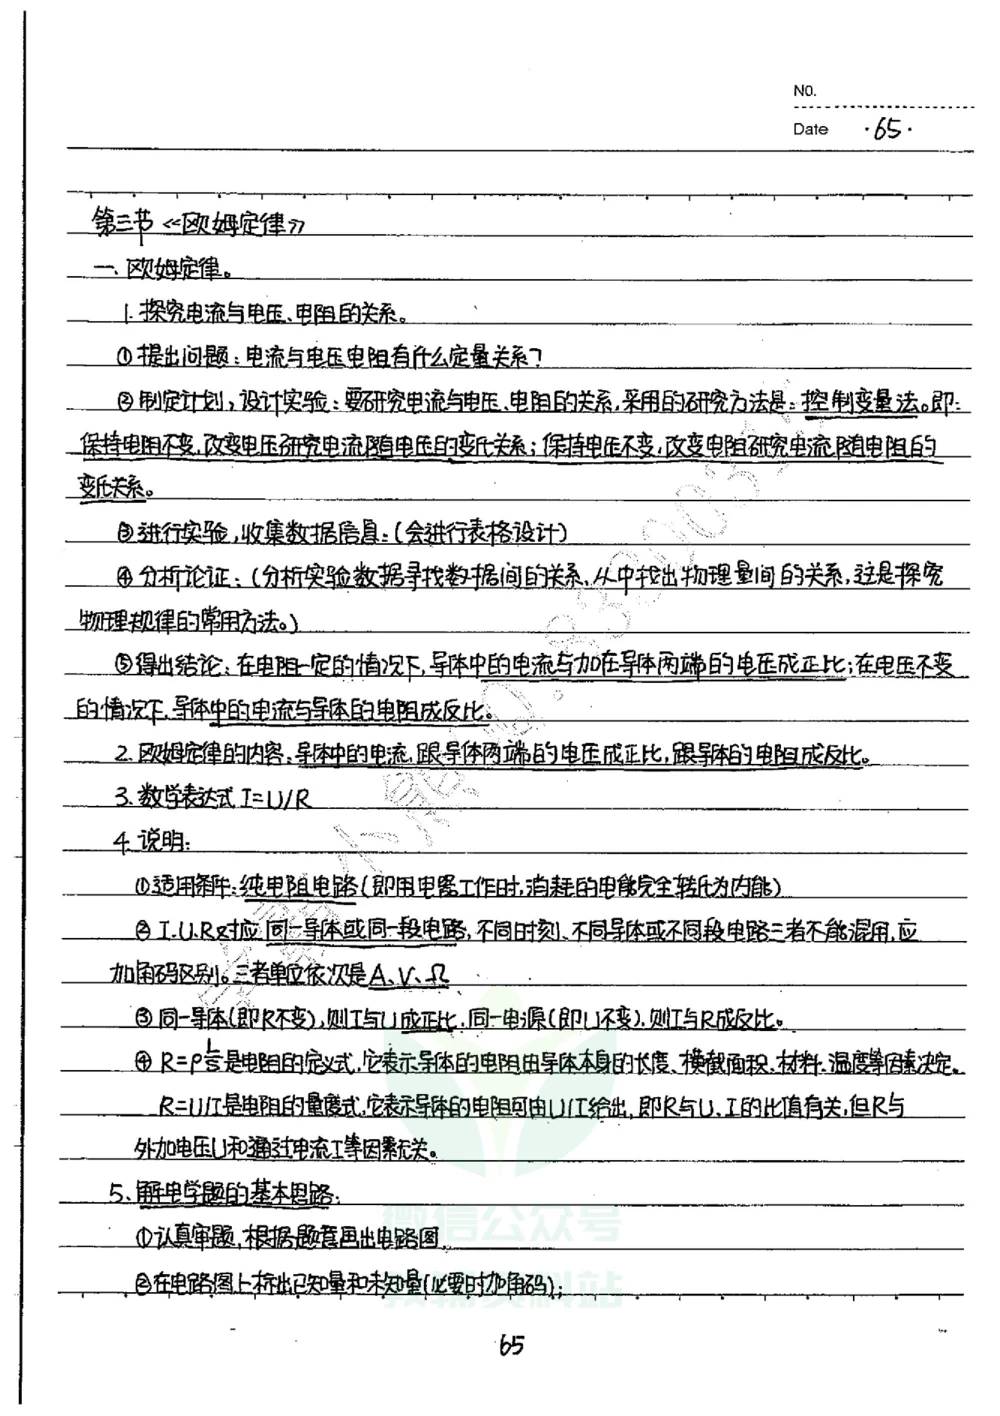 NO.
Date ·65·
第三节《欧姆定律》
一、欧姆定律。
1.探究电流与电压、电阻的关系。
①提出问题:电流与电压电阻有什么定量关系?
②制定计划,设计实验:要研究电流与电压、电阻的关系,采用的研究方法是:控制变量法。即:
保持电阻不变,改变电压研究电流随电压的变化关系;保持电压不变,改变电阻研究电流随电阻的
变化关系。
③进行实验,收集数据信息:(会进行表格设计)
④分析论证:(分析实验数据寻找数据间的关系,从中找出物理量间的关系,这是探究
物理规律的常用方法。)
⑤得出结论:在电阻一定的情况下,导体中的电流与加在导体两端的电压成正比;在电压不变
的情况下,导体中的电流与导体的电阻成反比。
2.欧姆定律的内容:导体中的电流,跟导体两端的电压成正比,跟导体的电阻成反比。
3.数学表达式 I=U/R
4.说明:
①适用条件:纯电阻电路(即用电器工作时,消耗的电能完全转化为内能)
②I、U、R对应同一导体或同一段电路,不同时刻、不同导体或不同段电路三者不能混用,应
加角码区别。三者单位依次是A、V、Ω
③同一导体(即R不变),则I与U成正比,同一电源(即U不变),则I与R成反比。
④R=ρL/S是电阻的定义式,它表示导体的电阻由导体本身的长度、横截面积、材料、温度等因素决定。
R=U/I是电阻的量度式,它表示导体的电阻可由U/I给出,即R与U、I的比值有关,但R与
外加电压U和通过电流I等因素无关。
5、解电学题的基本思路:
①认真审题,根据题意画出电路图
②在电路图上标出已知量和未知量(必要时加角码);
微信公众号
65